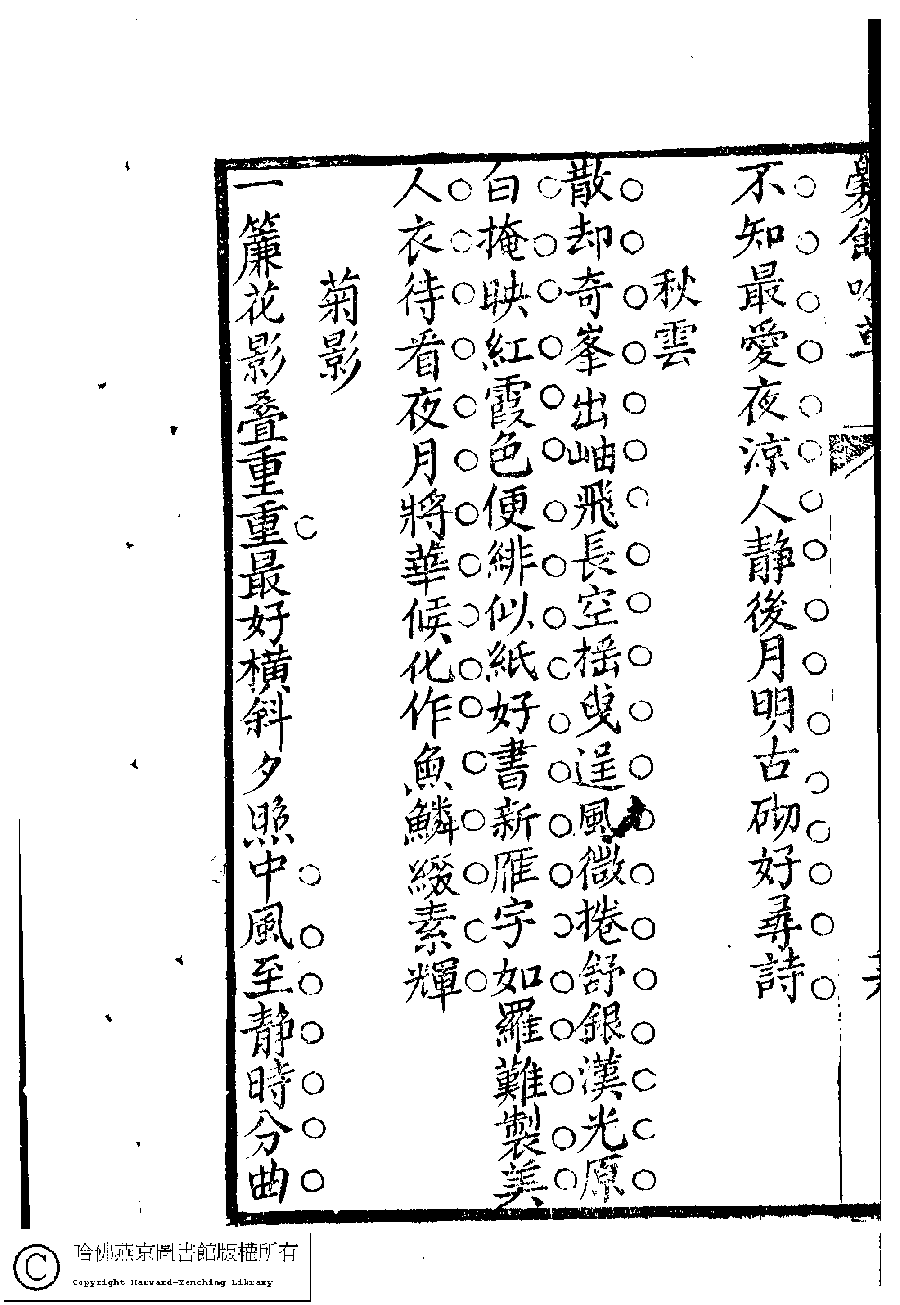 不知最愛夜涼人靜後月明古砌好尋詩
秋雲
散却奇峯出岫飛長空搖曳逞風微捲舒銀漢光原
白掩映紅霞色便緋似紙好書新雁字如羅難製美
人衣待看夜月將華候化作魚鱗綴素輝
菊影
一簾花影疊重重最好橫斜夕照中風至靜時分曲
哈佛燕京圖書館版權所有
Copyright Harvard-Yenching Library